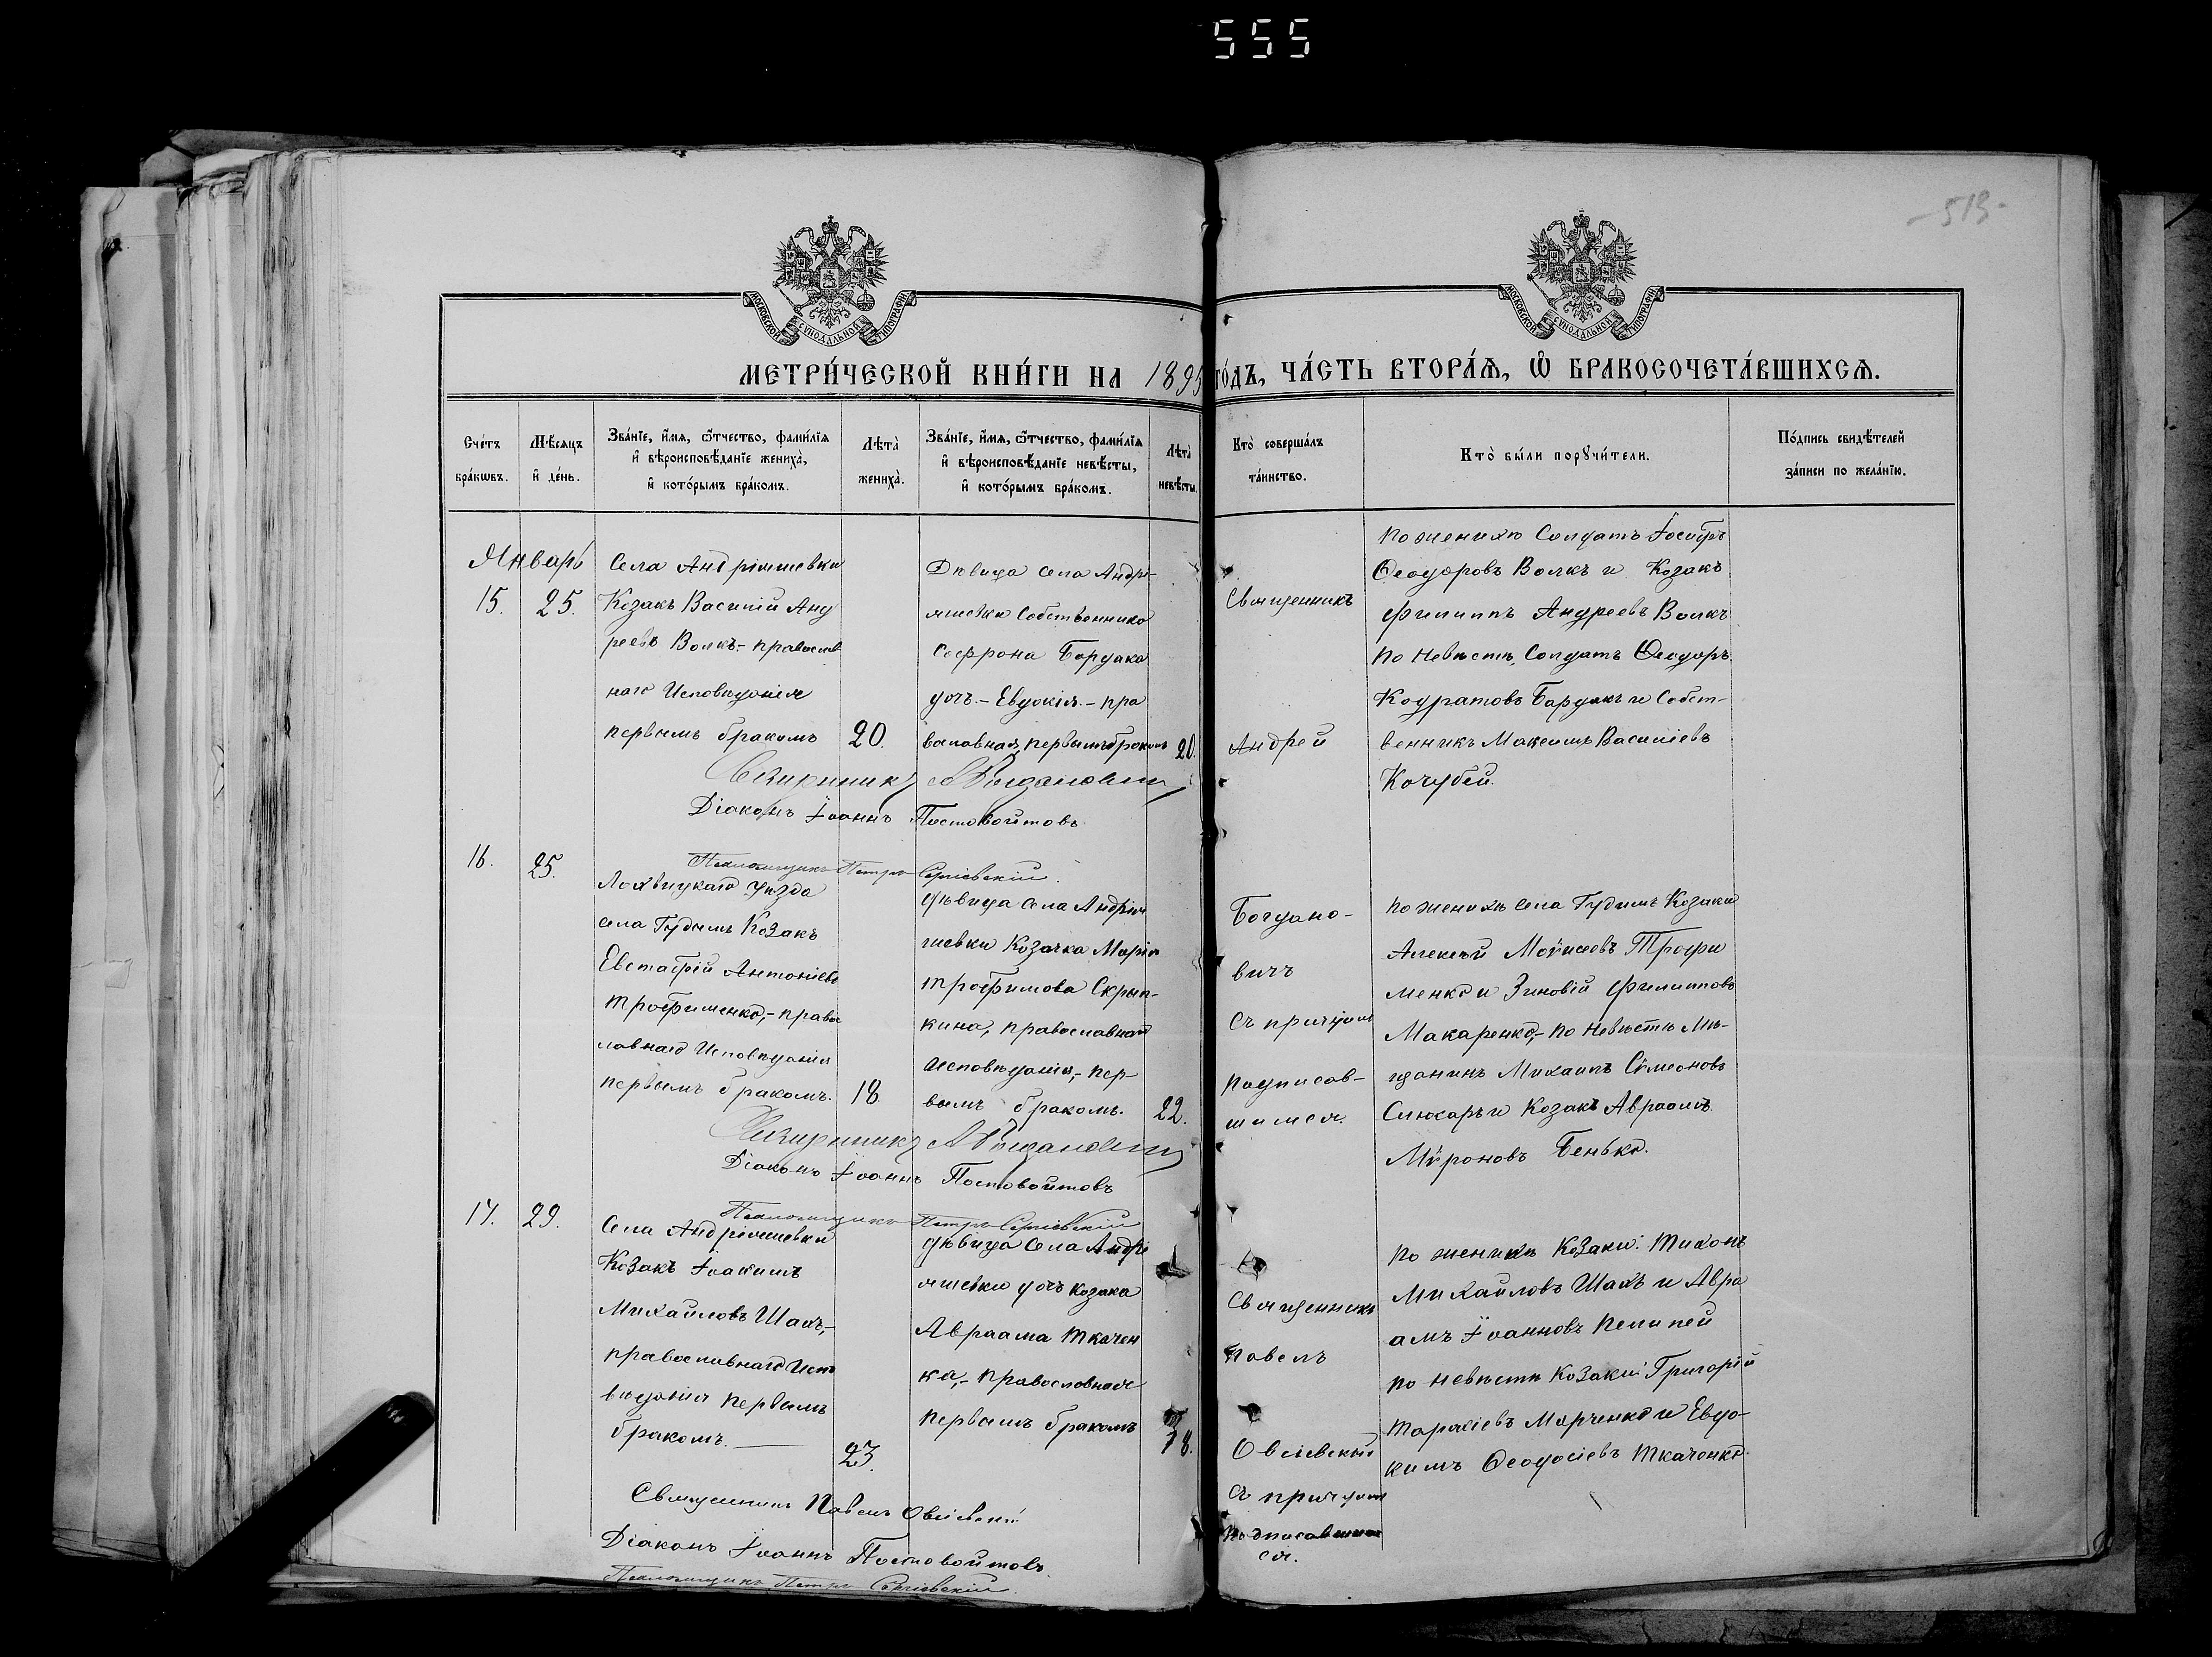 555
-513-
МОСКОВСКОЙ СУНОДАЛЬНОЙ ТИПОГРАФІИ
МОСКОВСКОЙ СУНОДАЛЬНОЙ ТИПОГРАФІИ
МЕТРИ́ЧЕСКОЙ КНИ́ГИ НА 1895 ГО́ДЪ, ЧА́СТЬ ВТОРА́Ѧ, Ѿ БРАКОСОЧЕТА́ВШИХСѦ.
Сче́тъ бра́кѡвъ.
Мѣ́сяцъ и҆ де́нь.
Зва́нїе, и҆́мѧ, ѻ҆́тчество, фами́лїѧ
и҆ вѣроисповѣ́данїе жениха̀,
и҆ кото́рымъ бра́комъ.
Лѣта̀ жениха̀.
Зва́нїе, и҆́мѧ, ѻ҆́тчество, фами́лїѧ
и҆ вѣроисповѣ́данїе невѣ́сты,
и҆ кото́рымъ бра́комъ.
Лѣта̀ невѣ́сты.
Кто̀ соверша́лъ та́инство.
Кто̀ бы́ли порꙋчи́тели.
По́дпись свидѣ́телей
за́писи по жела́нїю.
Январь
15.
25.
Села Андріяшевки
Козакъ Василій Анд
реевъ Волкъ.- православ
наго Исповѣданія
первымъ бракомъ
20.
Дѣвица села Андрі-
яшевки Собственника
Софрона Бардака
дочь.- Евдокія.- пра
вославная, первымъ бракомъ
20.
Священникъ
Андрей
По женихѣ Солдатъ Іосифъ
Ѳеодоровъ Волкъ и Козакъ
Филиппъ Андреевъ Волкъ
По Невѣстѣ, Солдатъ Ѳеодоръ
Кодратовъ Бардакъ и Собст-
венникъ Максимъ Василіевъ
Кочубей.
Священникъ А Богдановичъ
Діаконъ Іоаннъ Постовойтовъ
Псаломщикъ Петръ Сергіевскій.
16.
25.
Лохвицкаго уѣзда
села Гудимъ Козакъ
Евстафій Антоніевъ
Трофименко,- правос
лавнаго Исповѣданія
первымъ бракомъ.
18.
дѣвица села Андрія
шевки Козачка Марія
Трофимова Скрып-
кина, православнаго
Исповѣданія,- пер-
вымъ бракомъ.
22.
Богдано-
вичъ
съ причтомъ
подписав-
шимся.
По женихѣ села Гудимъ Козаки
Алексѣй Моѵсеевъ Трофи
менко и Зиновій Филипповъ
Макаренко,- По Невѣстѣ Мѣ-
щанинъ Михаилъ Сѵмеоновъ
Слюсарь и Козакъ Авраамъ
Мѵроновъ Бенько.
Священникъ А Богдановичъ
Діаконъ Іоаннъ Постовойтовъ
Псаломщикъ Петръ Сергіевскій
17.
29.
Села Андріяшевки
Козакъ Іоакимъ
Михайловъ Шахъ,-
православнаго Испо
вѣданія первымъ
бракомъ.
23.
дѣвица села Андрі
яшевки дочь козака
Авраама Ткачен
ка,- православная
первымъ бракомъ
18.
Священникъ
Павелъ
Овсіевскій
съ причтом
подписавшим
ся.
По женихѣ Козаки: Тихонъ
Михайловъ Шахъ и Авра
амъ Іоанновъ Пелипей
по невѣстѣ Козаки Григорій
Тарасіевъ Марченко и Евдо-
кимъ Ѳеодосіевъ Ткаченко.
Священникъ Павелъ Овсіевскій
Діаконъ Іоаннъ Постовойтовъ
Псаломщикъ Петръ Сергіевскій.